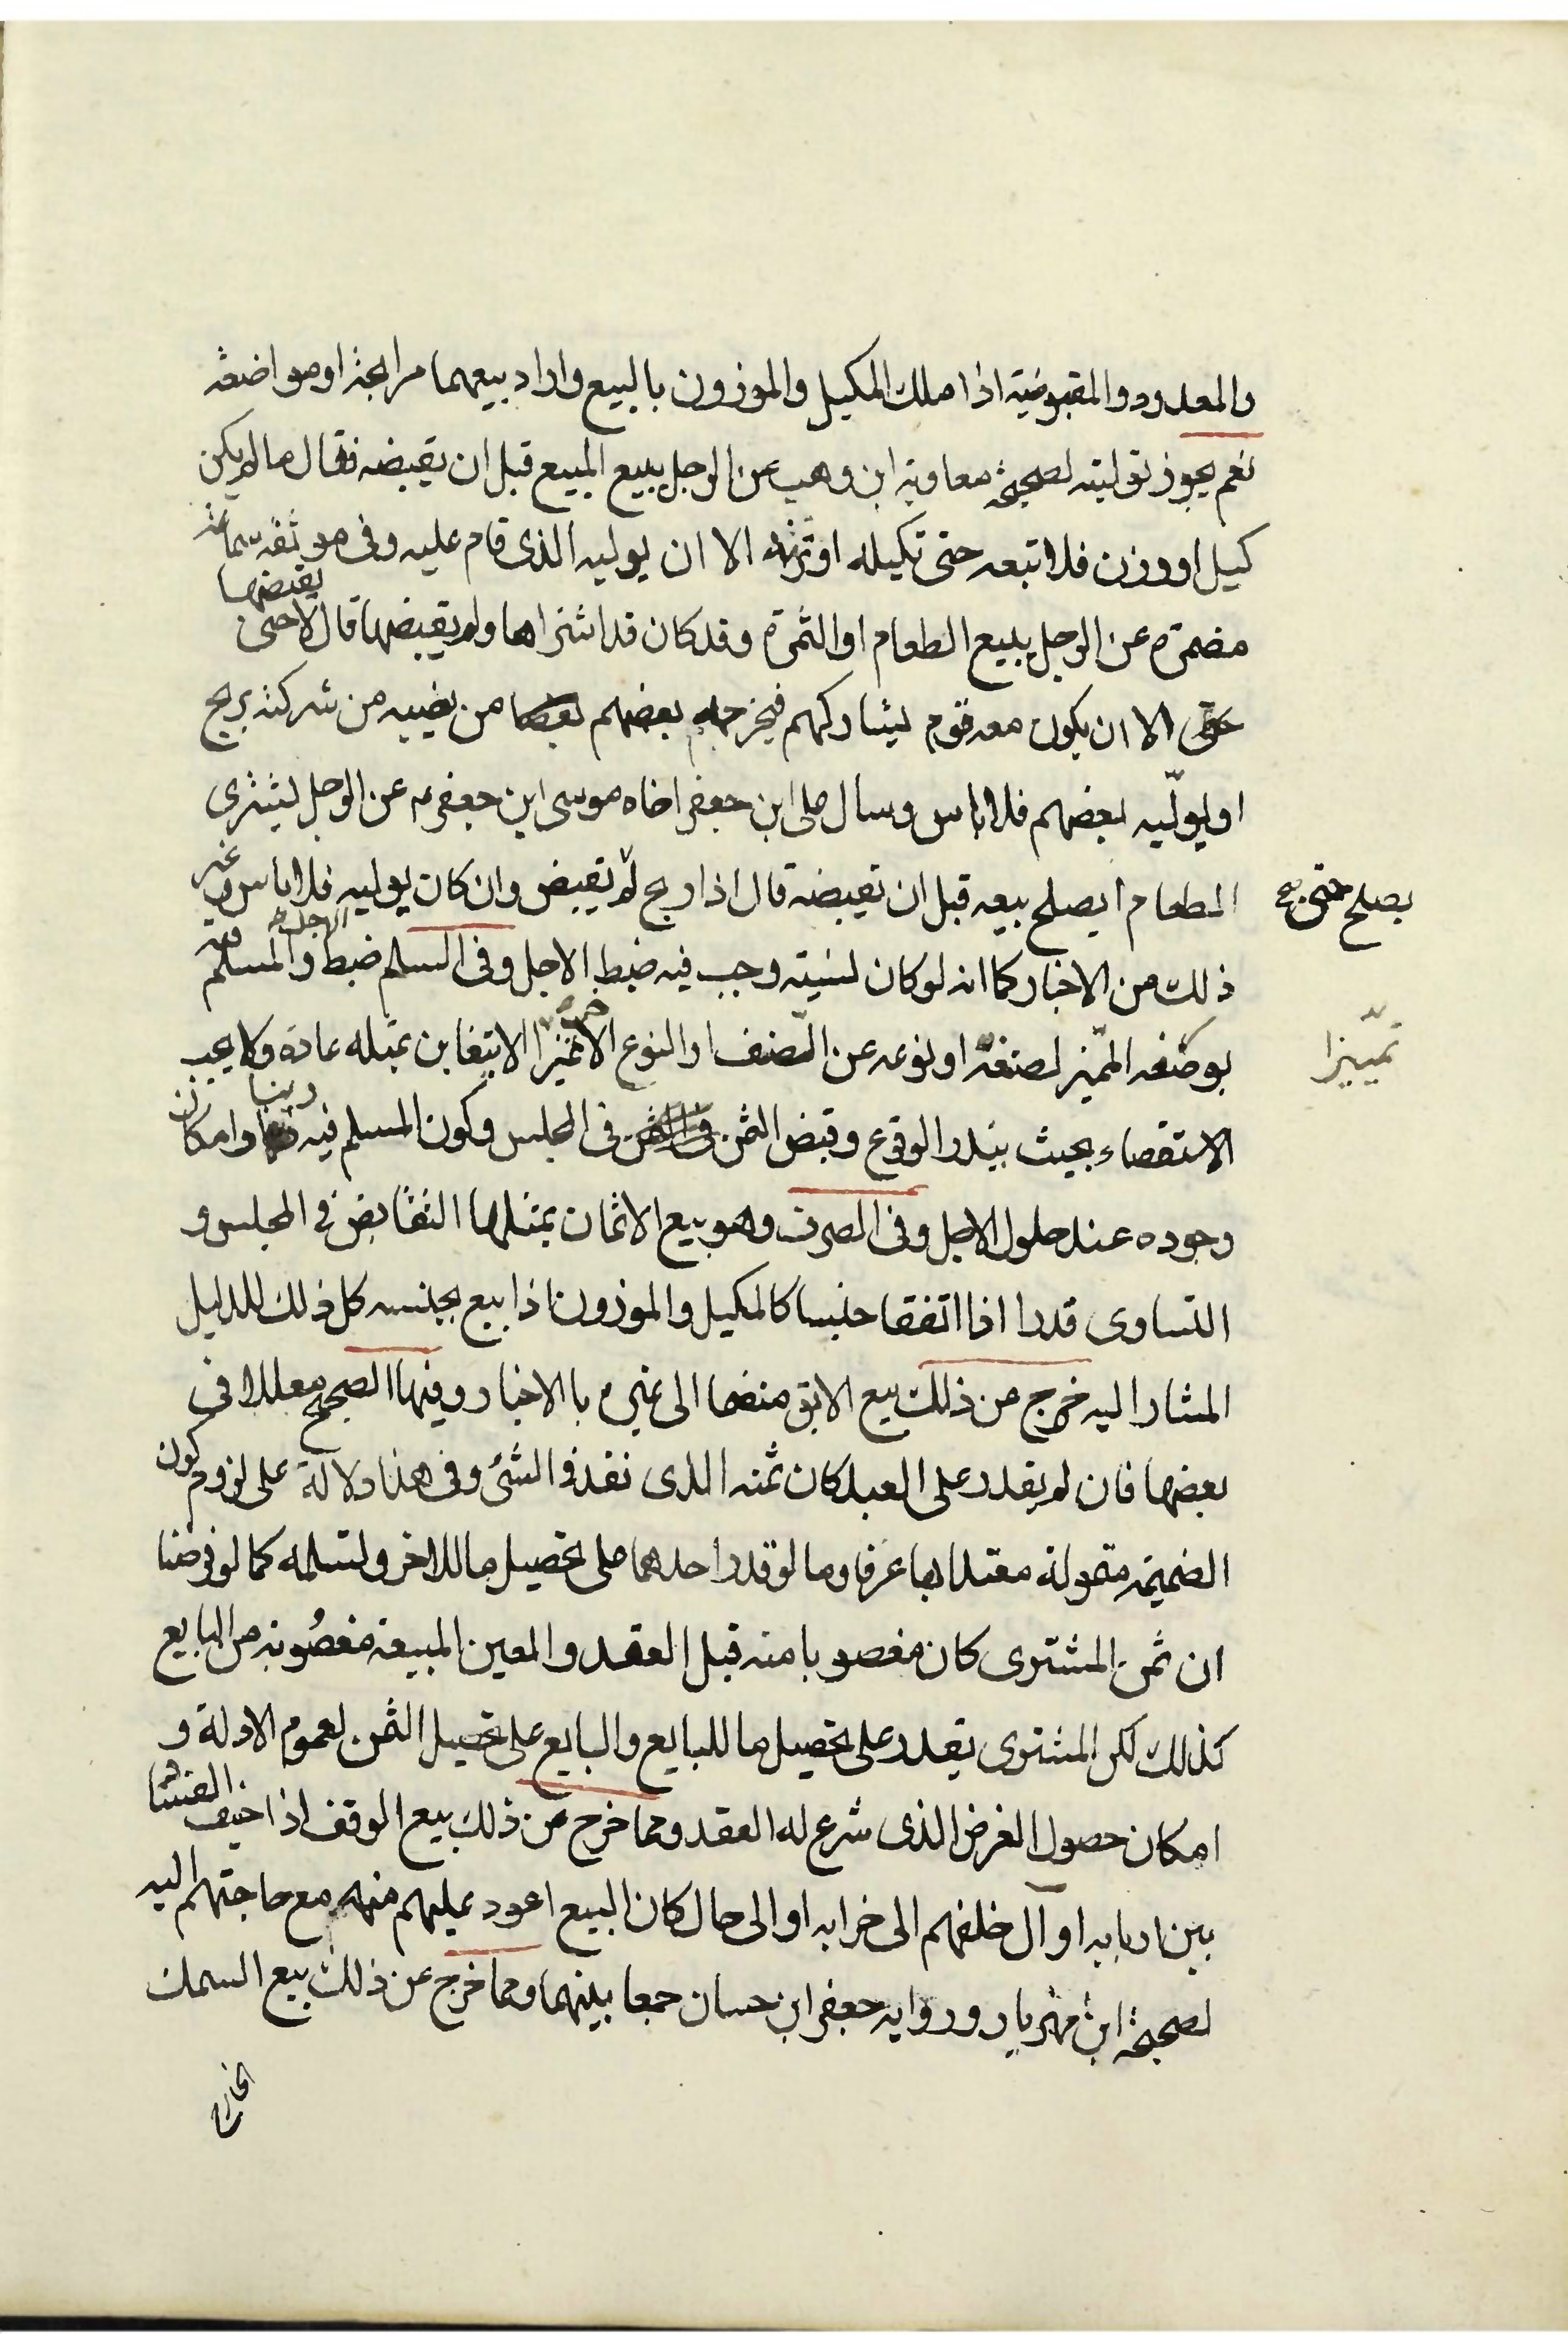 والمعدود والمقبوضية اذا ملك المكيل والموزون بالبيع واراد بيعهما مرابحة او مواضعة
نعم يجوز توليته لصحيحة معاوية ابن وهب عن الرجل يبيع المبيع قبل ان يقبضه فقال ما لم يكن
كيل او وزن فلا تبعه حتى تكيله او تزنه الا ان يوليه الذى قام عليه وفى موثقة سماعة
مضمرة عن الرجل يبيع الطعام او الثمرة وقد كان قد اشتراها ولم يقبضها قال لا حتى يقبضها
الا ان يكون معه قوم يشاركهم فيخرجه بعضهم من نصيبه من شركته بربح
او يولّيه بعضهم فلا باس وسال على ابن جعفر اخاه موسى ابن جعفر ع عن الرجل يشترى
الطعام ايصلح بيعه قبل ان يقبضه قال اذا ربح لم يصلح حتى يقبض وان كان يوليه فلا باس وغير
ذلك من الاخبار كما انه لو كان نسيته وجب فيه ضبط الاجل وفى السلم ضبط الاجل والمسلم فيه
بوصفه المميّز لصنفه او نوعه عن الصنف او النوع الاخر تمييزا لا يتغابن بمثله عادة ولا يجب
تمييزا
الاستقصاء بحيث يندر الوقوع وقبض الثمن فى المجلس وكون المسلم فيه دينا وامكان
وجوده عند حلول الاجل وفى الصرف وهو بيع الاثمان بمثلها التقابض فى المجلس و
التساوى قدرا اذا اتفقا جنسا كالمكيل والموزون اذا بيع بجنسه كل ذلك للدليل
المشار اليه خرج من ذلك بيع الابق منضما الى غيره بالاخبار وفيها الصحيح معللا فى
بعضها فان لم يقدر على العبد كان ثمنه الذى نقد فى الشئ وفى هذا دلالة على لزوم كون
الضميمة متمولة معتدا بها عرفا وما لو قدر احدهما على تحصيل ما للاخر وتسلمه كما لو فرضنا
ان ثمن المشترى كان مغصوبا منه قبل العقد والعين المبيعة مغصُوبة من البايع
كذلك لكن المشترى يقدر على تحصيل ما للبايع والبايع على تحصيل الثمن لعموم الادلة و
امكان حصول الغرض الذى شرع له العقد ومما خرج عن ذلك بيع الوقف اذا خيف الفساد
بين اربابه او آل خلفهم الى خرابه او الى حال كان البيع اعود عليهم منه مع حاجتهم اليه
لصحيحة ابن مهزيار ورواية جعفر ابن حسان جمعا بينهما ومما خرج عن ذلك بيع السمك